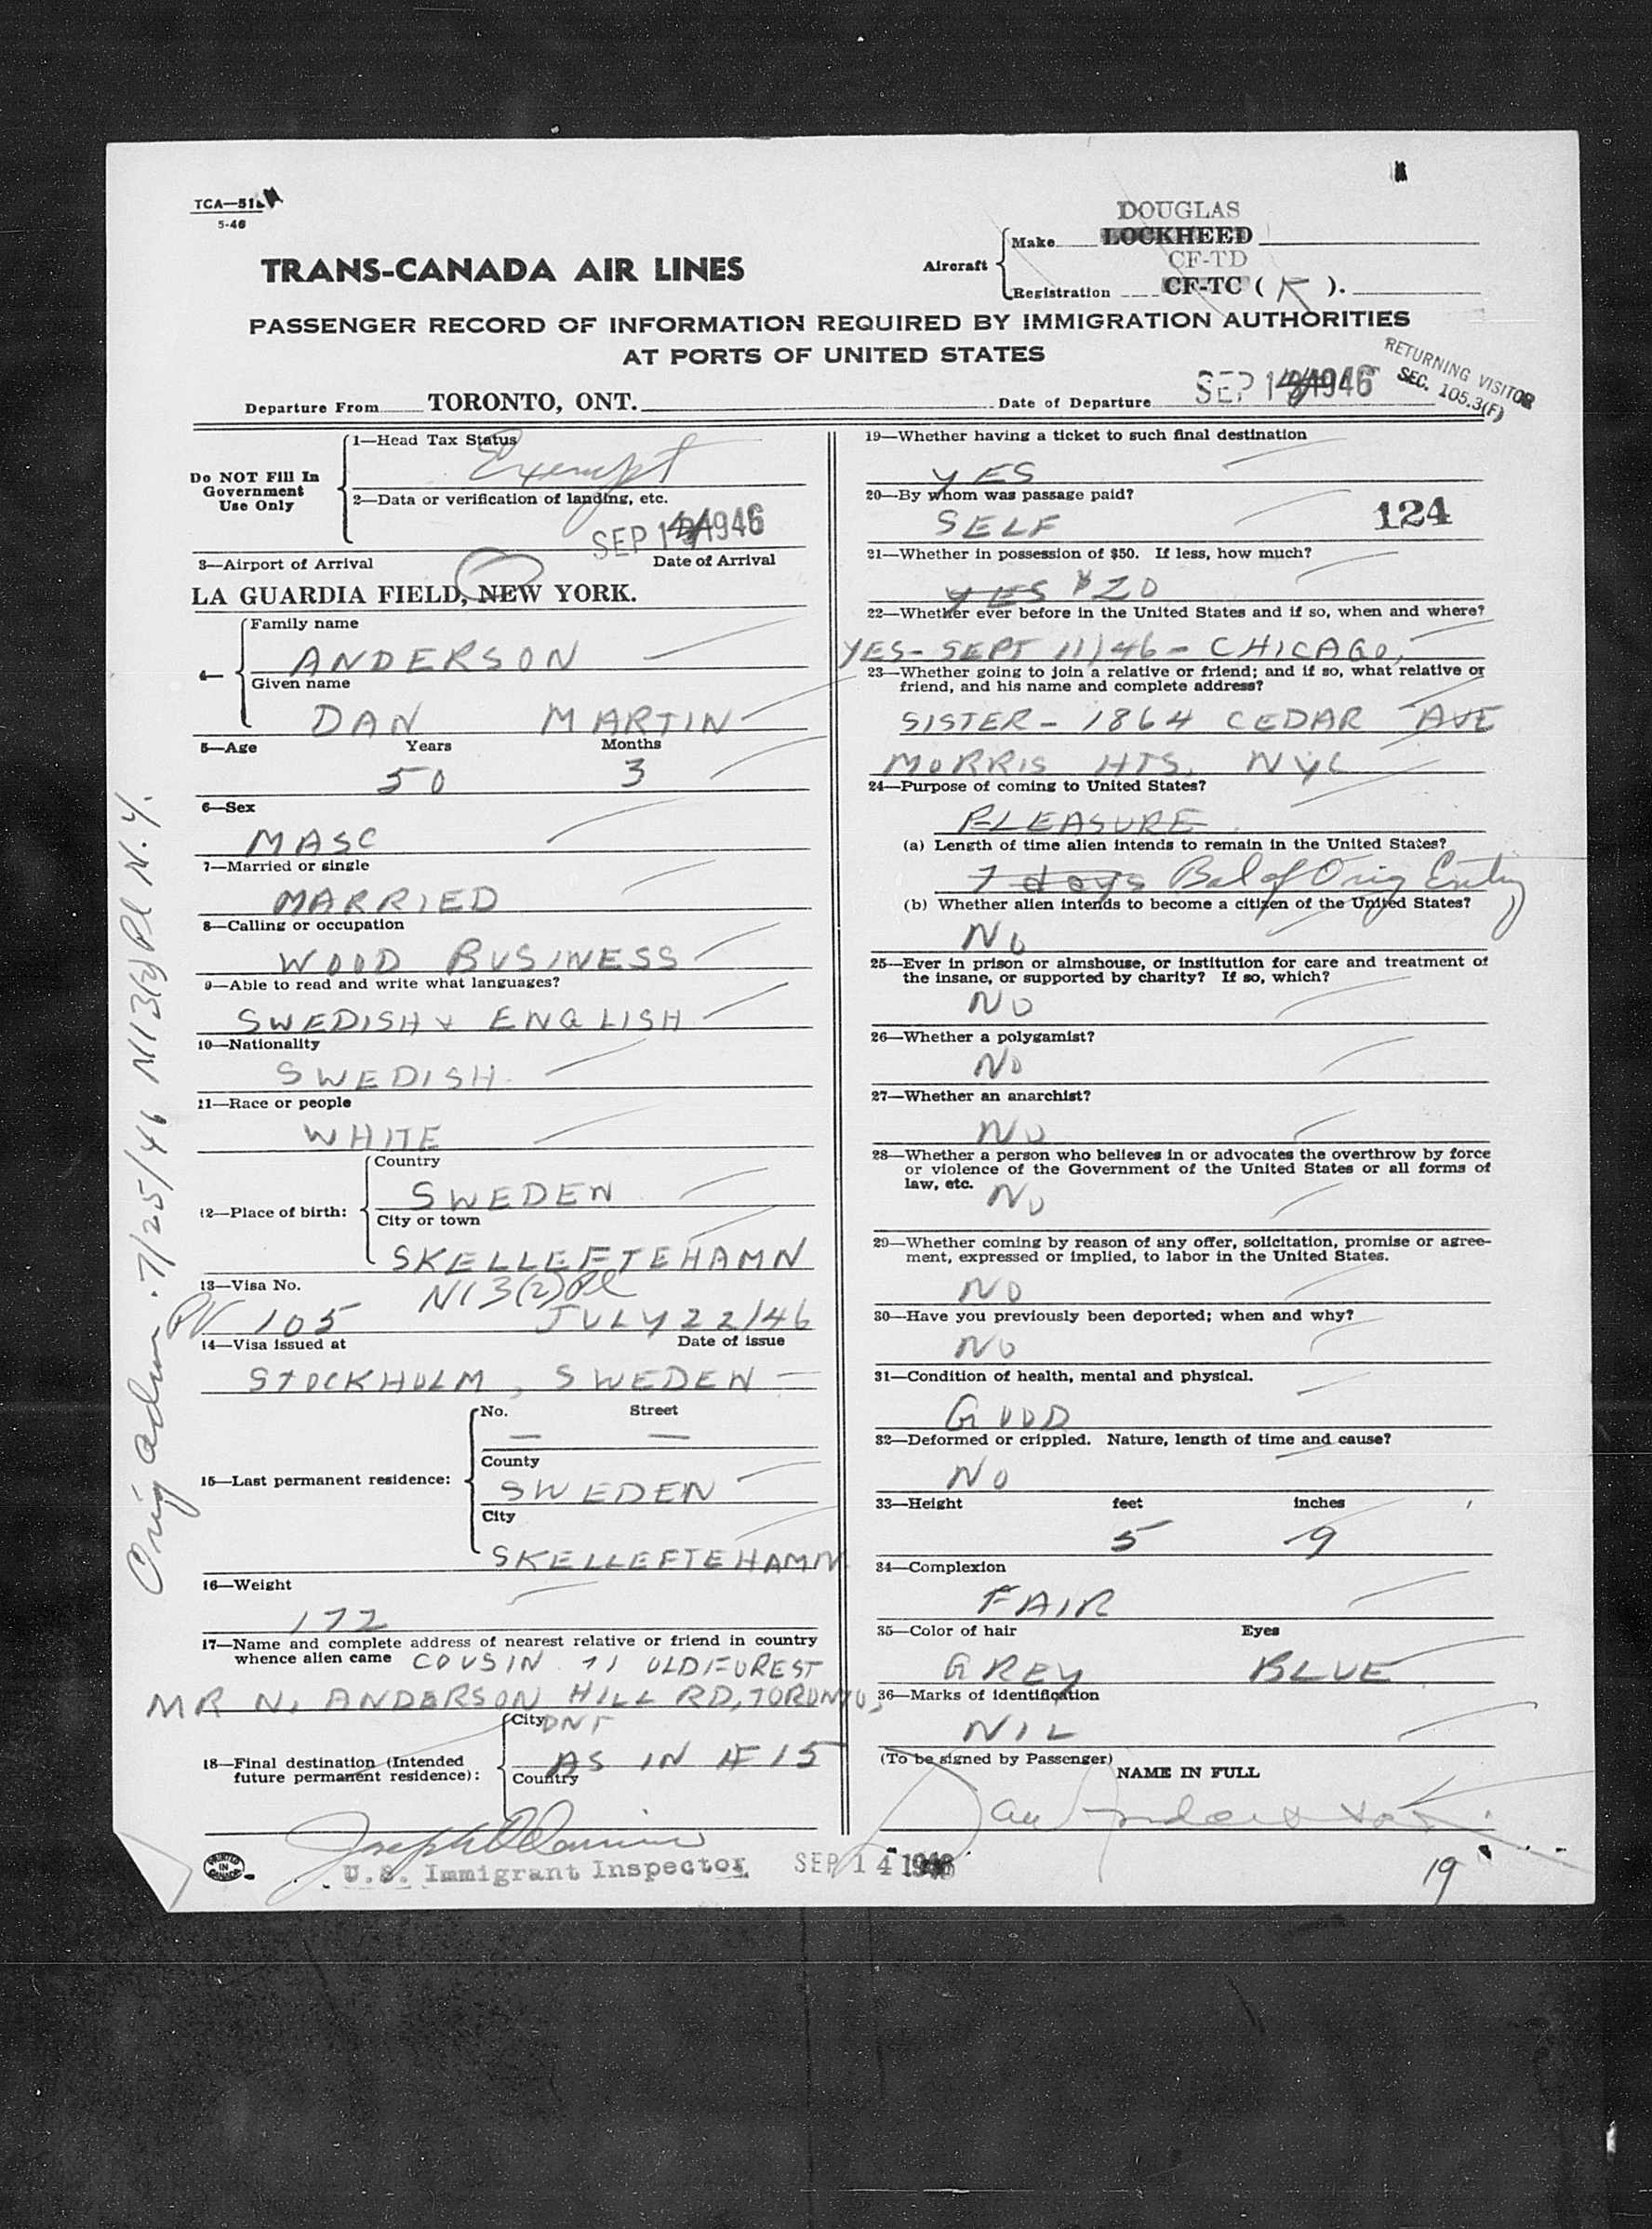 TCA—51
5-46
TRANS-CANADA AIR LINES
DOUGLAS
Aircraft Make LOCKHEED
CF-TD
Registration CF-TC ( K ).
PASSENGER RECORD OF INFORMATION REQUIRED BY IMMIGRATION AUTHORITIES
AT PORTS OF UNITED STATES
RETURNING VISITOR
SEC. 105.3(F)
Departure From TORONTO, ONT. Date of Departure SEP 14 1946
Do NOT Fill In
Government
Use Only
1—Head Tax Status
Exempt
2—Data or verification of landing, etc.
SEP 14 1946
3—Airport of Arrival Date of Arrival
LA GUARDIA FIELD, NEW YORK.
4—
Family name
ANDERSON
Given name
DAN MARTIN
5—Age Years Months
50 3
6—Sex
MASC
7—Married or single
MARRIED
8—Calling or occupation
WOOD BUSINESS
9—Able to read and write what languages?
SWEDISH & ENGLISH
10—Nationality
SWEDISH
11—Race or people
WHITE
12—Place of birth:
Country
SWEDEN
City or town
SKELLEFTEHAMN
13—Visa No. N13(2)Pl
PV 105 JULY 22/46
14—Visa issued at Date of issue
STOCKHOLM, SWEDEN
15—Last permanent residence:
No. Street
— —
County
SWEDEN
City
SKELLEFTEHAMN
16—Weight
172
17—Name and complete address of nearest relative or friend in country
whence alien came COUSIN 71 OLD FOREST
MR N. ANDERSON HILL RD, TORONTO,
City ONT
18—Final destination (Intended
future permanent residence):
AS IN # 15
Country
U.S. Immigrant Inspector
SEP 14 1946
Orig adm. 7/25/46 N13(2)Pl N.Y.
19—Whether having a ticket to such final destination
YES
20—By whom was passage paid?
SELF
124
21—Whether in possession of $50. If less, how much?
YES $20
22—Whether ever before in the United States and if so, when and where?
YES- SEPT 11/46 - CHICAGO,
23—Whether going to join a relative or friend; and if so, what relative or
friend, and his name and complete address?
SISTER - 1864 CEDAR AVE
MORRIS HTS, NYC
24—Purpose of coming to United States?
PLEASURE
(a) Length of time alien intends to remain in the United States?
7 days Bal of Orig Entry
(b) Whether alien intends to become a citizen of the United States?
NO
25—Ever in prison or almshouse, or institution for care and treatment of
the insane, or supported by charity? If so, which?
NO
26—Whether a polygamist?
NO
27—Whether an anarchist?
NO
28—Whether a person who believes in or advocates the overthrow by force
or violence of the Government of the United States or all forms of
law, etc.
NO
29—Whether coming by reason of any offer, solicitation, promise or agree-
ment, expressed or implied, to labor in the United States.
NO
30—Have you previously been deported; when and why?
NO
31—Condition of health, mental and physical.
GOOD
32—Deformed or crippled. Nature, length of time and cause?
NO
33—Height feet inches
5 9
34—Complexion
FAIR
35—Color of hair Eyes
GREY BLUE
36—Marks of identification
NIL
(To be signed by Passenger)
NAME IN FULL
19
PRINTED IN CANADA